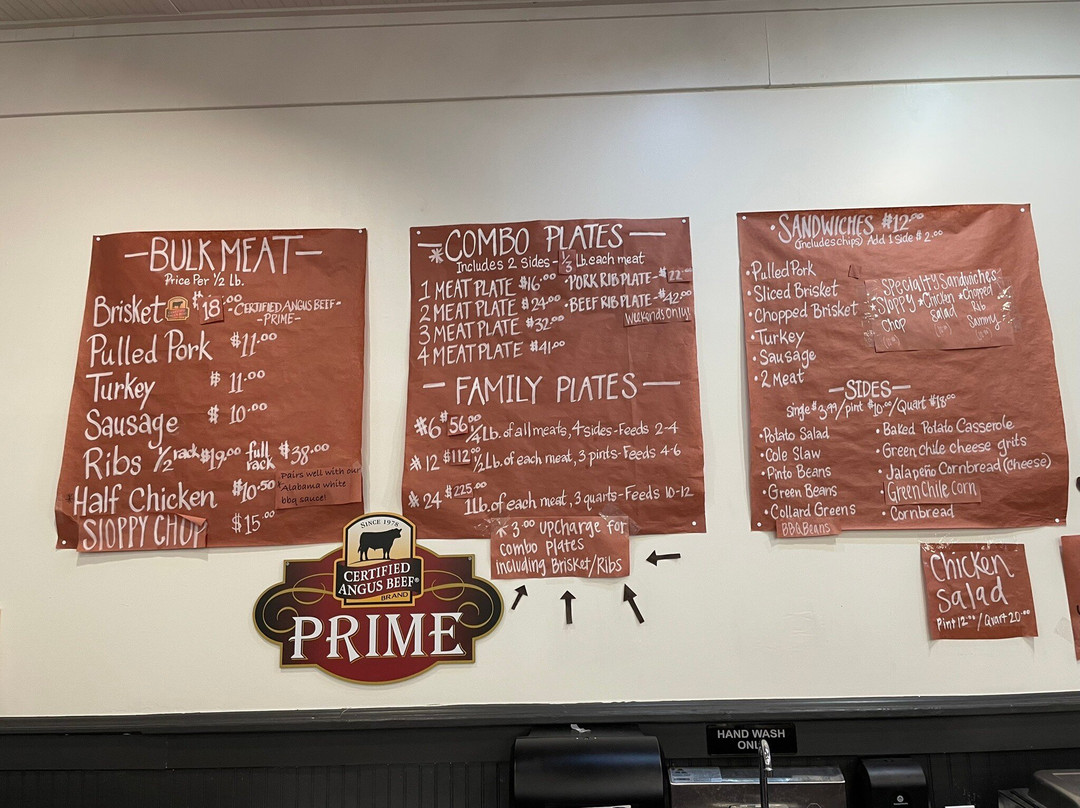 —BULK MEAT—
Price Per 1/2 Lb.
Brisket $18.00 -CERTIFIED ANGUS BEEF-
-PRIME-
Pulled Pork $11.00
Turkey $11.00
Sausage $10.00
Ribs 1/2 rack $19.00 full rack $38.00
Half Chicken $10.50
Pairs well with our
Alabama white
bbq sauce!
SLOPPY CHOP $15.00
—*COMBO PLATES—
Includes 2 Sides - 1/3 Lb. each meat
1 MEAT PLATE $16.00
2 MEAT PLATE $24.00
3 MEAT PLATE $32.00
4 MEAT PLATE $41.00
•PORK RIB PLATE-$22.00
•BEEF RIB PLATE-$42.00
Weekends only!
— FAMILY PLATES —
*6 $56.00 1/4 Lb. of all meats, 4 sides-Feeds 2-4
*12 $112.00 1/2 Lb. of each meat, 3 pints-Feeds 4-6
*24 $225.00 1 Lb. of each meat, 3 quarts-Feeds 10-12
* 3.00 upcharge for
combo plates
including Brisket/Ribs
SINCE 1978
CERTIFIED
ANGUS BEEF®
BRAND
PRIME
•SANDWICHES $12.00
(includes chips) Add 1 side $2.00
•Pulled Pork
•Sliced Brisket
•Chopped Brisket
•Turkey
•Sausage
•2 Meat
Specialty Sandwiches
*Sloppy Chop
*Chicken Salad
*Chopped Rib Sammy
—SIDES—
single $3.99/pint $10.00/Quart $18.00
•Potato Salad
•Cole Slaw
•Pinto Beans
•Green Beans
•Collard Greens
•BBQ Beans
•Baked Potato Casserole
•Green chile cheese grits
•Jalapeño Cornbread (cheese)
•Green Chile Corn
•Cornbread
Chicken
Salad
Pint 12.00/Quart 20.00
HAND WASH
ONLY